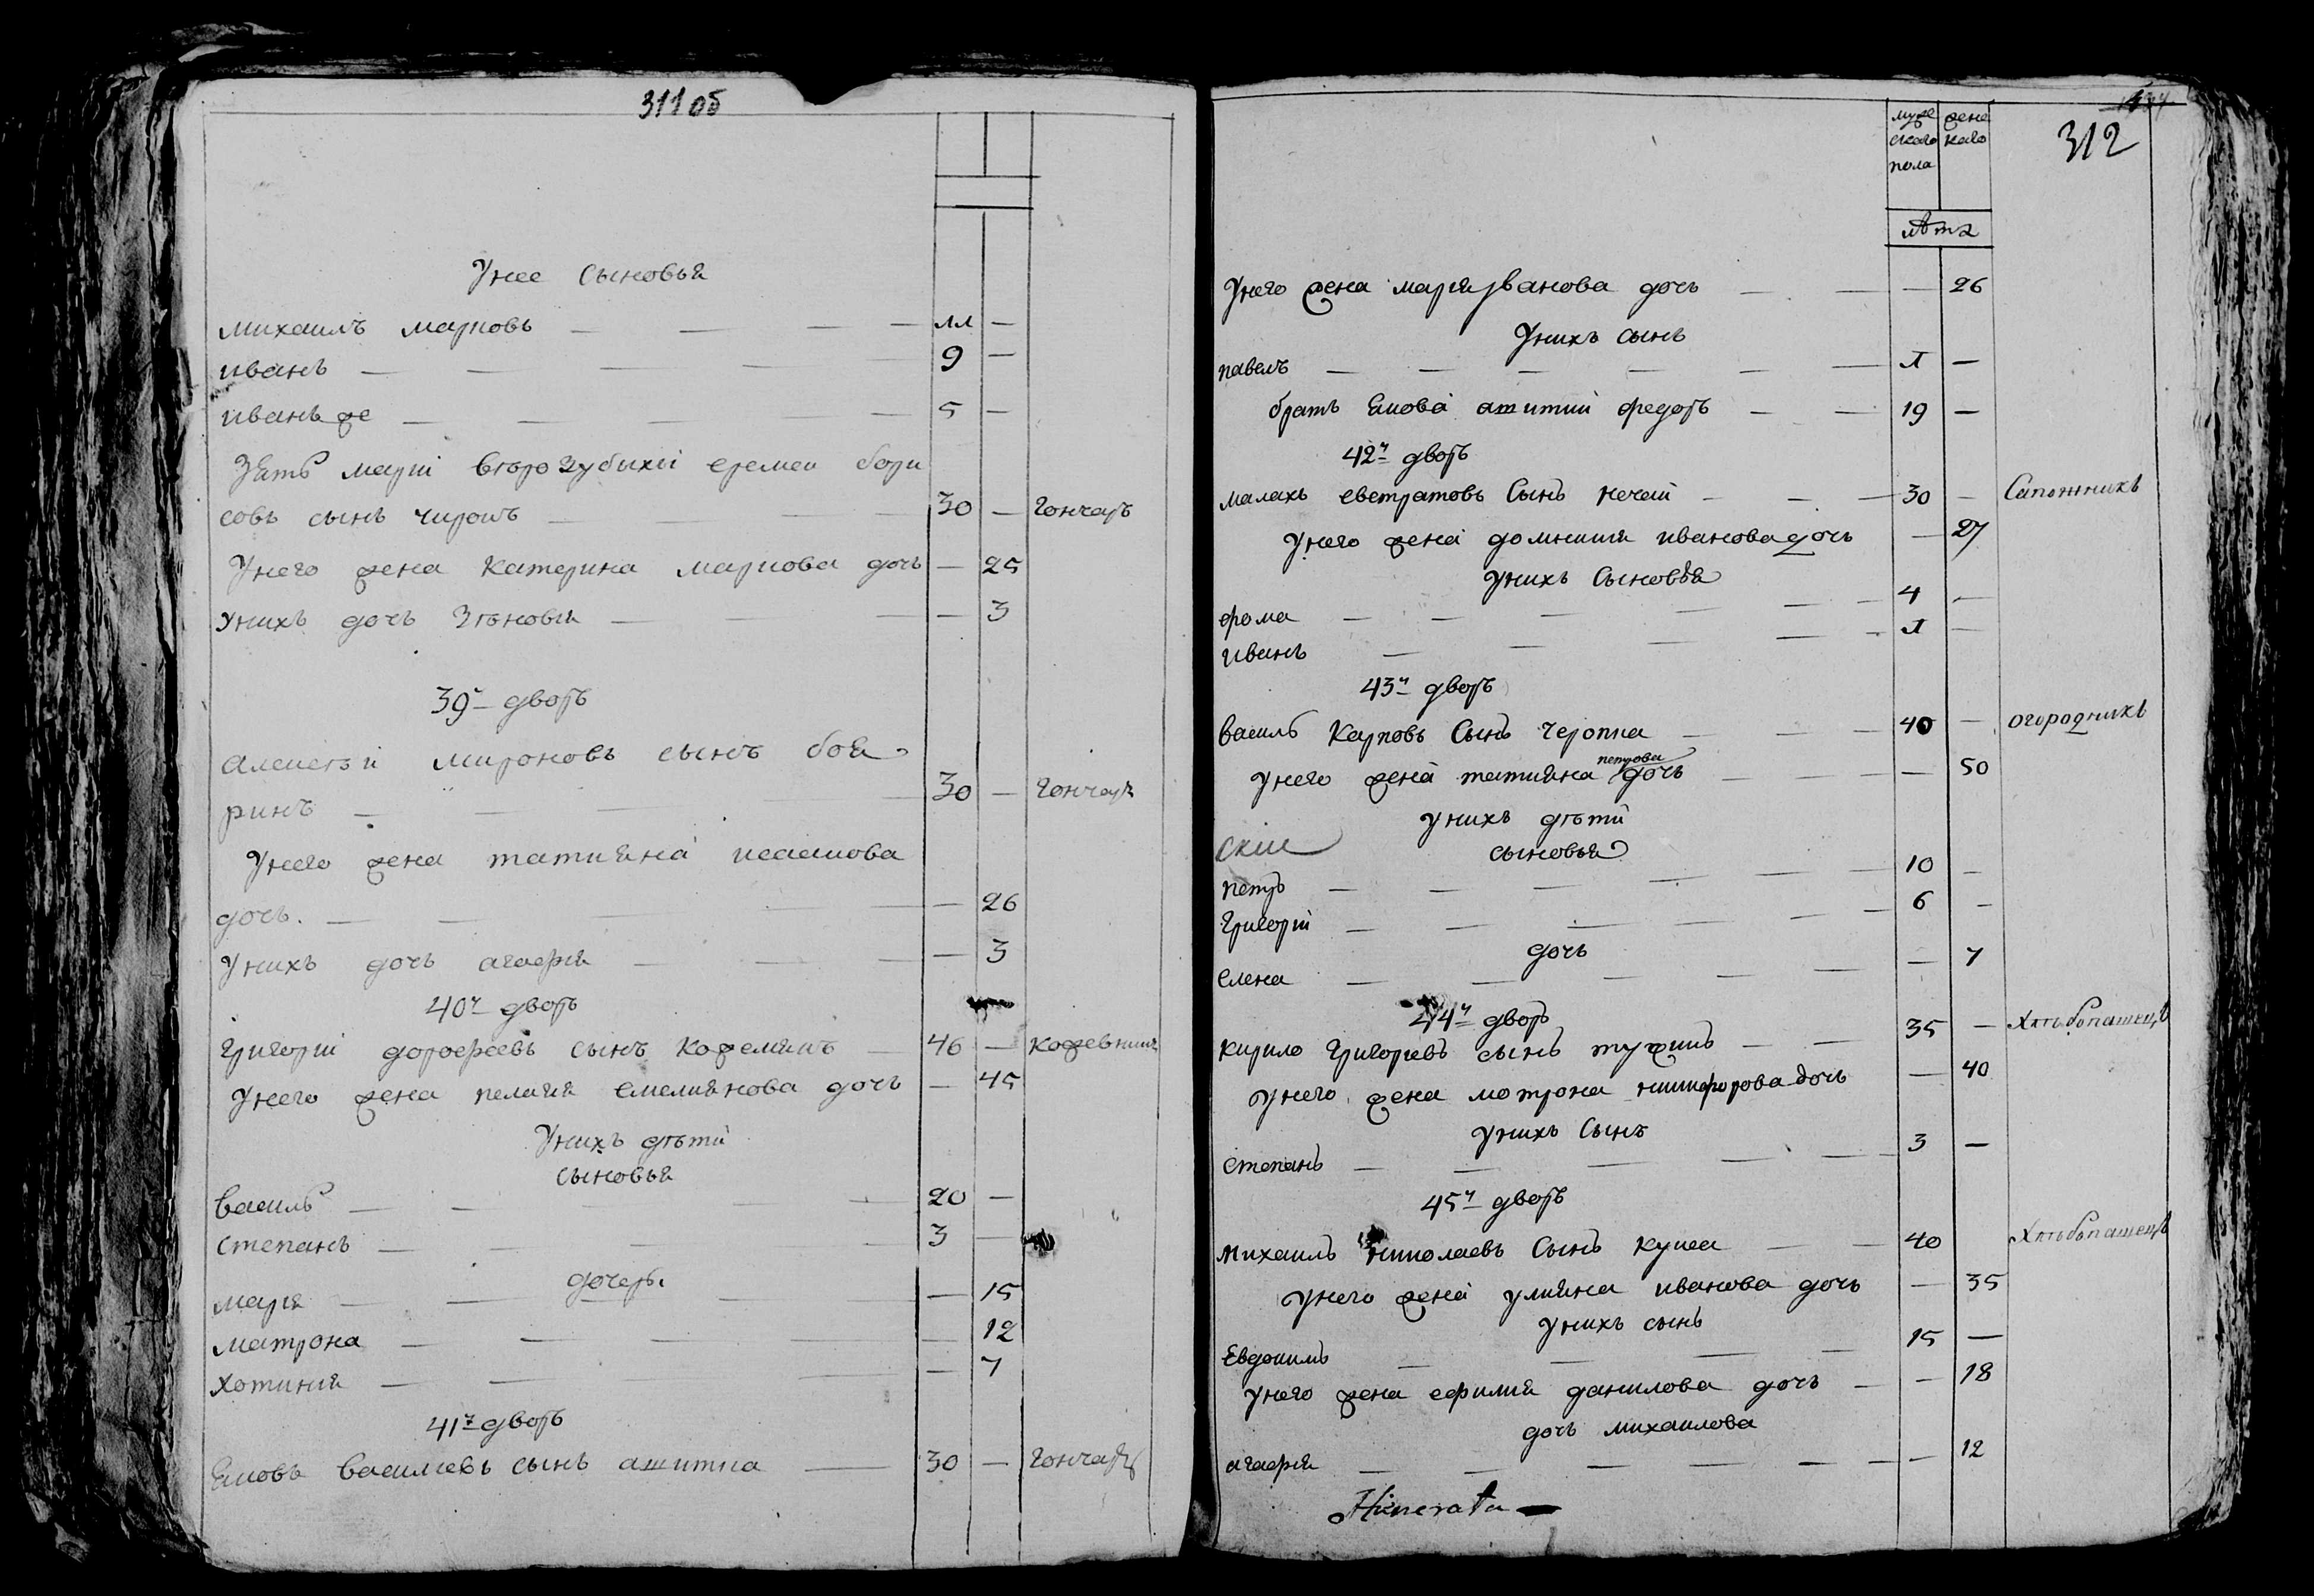 311 об
Унее сыновья
михаилъ марковъ — — — — 11 —
иванъ — — — — 9 —
иванъ же — — — — 5 —
Зять маріи второзубыхи еремеи бори
совъ сынъ чирошъ — — — 30 — гончаръ
Унего жена катерина маркова дочь — 25
унихъ дочь Зѣновия — — — 3
39й дворъ
алексѣи мироновъ сынъ боя
ринъ — — — — 30 — гончаръ
Унего жена татияна исаакова
дочь. — — — — — 26
Унихъ дочь агафия — — — — 3
40й дворъ
григоріи дорофеевъ сынъ кожемякъ — 46 — кожевникъ
Унего жена пелагия емелиянова дочь — 45
Унихъ дѣти
сыновья
василь — — — — 20 —
степанъ — — — — 3 —
дочеры
мария — — — — — 15
матрона — — — — — 12
хотиния — — — — 7
41й дворъ
Яковъ василиевъ сынъ ашитка — 30 — гончаръ
муже
ского
пола
жена
каго
312
лѣта
Унего жена мария Иванова дочь — — — 26
Унихъ сынъ
павелъ — — — — — — 1 —
братъ Якова ашитки федоръ — — 19 —
42й дворъ
малахъ евстратовъ Сынъ нечай — — — 30 — Сапожникъ
Унего жена домникия иванова дочь — 27
Унихъ Сыновья
фома — — — — — 4 —
иванъ — — — — — 1 —
43й дворъ
василь Карповъ Сынъ черопка — — — 40 — огородникъ
петрова
Унего жена татияна дочь — — — — 50
Унихъ дѣти
сыновья
петръ — — — — — — 10 —
григоріи — — — — — — 6 —
дочь
елена — — — — — — 7
44й дворъ
кирило григориевъ сынъ тужикъ — — 35 — Хлѣбопашецъ
Унего жена мотрона никифорова дочь — 40
Унихъ Сынъ
степанъ — — — — — 3 —
45й дворъ
михаилъ николаевъ Сынъ куцка — — 40 Хлѣбопашецъ
Унего жена улияна иванова дочь — 35
Унихъ сынъ
Евдокимъ — — — — 15 —
Унего жена ефимия данилова дочь — — 18
дочь михаилова
агафия — — — — — — — 12